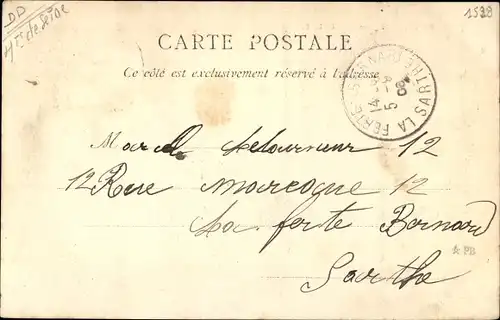 DD
Hts de Seine
1538
CARTE POSTALE
Ce côté est exclusivement réservé à l'adresse
LA FERTE-BERNARD SARTHE
14 5
Marcel Letourneur 12
12 Rue marcoque 12
La ferte Bernard
Sarthe
PB